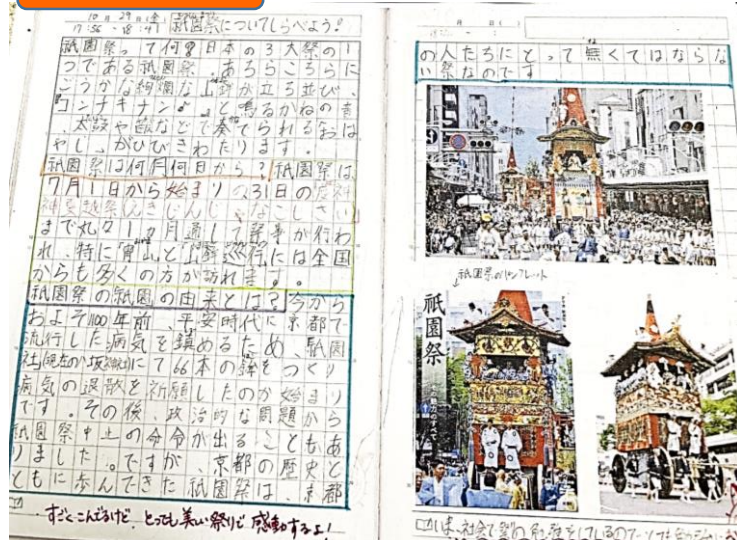 10月29日(金)
17:56 - 18:47
祇園祭についてしらべよう!
祇園祭って何?日本の3大祭の1
つである祇園祭。あちらこちらに
ごうかな絢爛な山鉾が立ち並び、
コンチキチン♪。と鳴るかねの音
、太鼓や笛などで奏でられるおは
やし、がひびきわたります。
祇園祭は何月何日から?祇園祭は、
7月1日から始まり、31日の疫神
まで丸々1ヶ月通して行事が行わ
れ、特に「宵山」と「山鉾巡行」には全国
からも多くの方が訪れます。
祇園祭の祇園の由来とは?今から
およそ1100年前、平安時代に京都で
流行した病気を鎮めるため、祇園
社(現在の八坂神社)にて66本の鉾をつくり
病気の退散を祈願したのが始まり
です。その後、政治的な問題から
祇園祭中止の命令が出ることもあ
りました。ですが、京都の歴史と
ともに歩んできた祇園祭は、京都
すごくこんでるけど、とっても美しい祭りで感動するよ!
月 日( )
の人たちにとって無くてはならな
い祭なのです
祇園祭のパンフレット
祇園祭